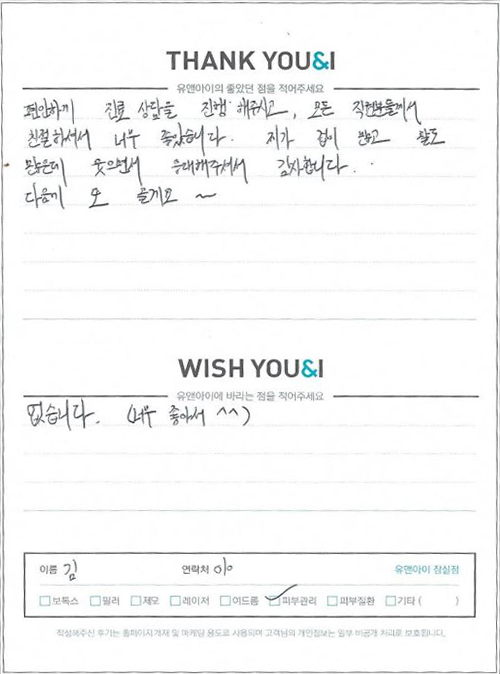 THANK YOU&I
유앤아이의 좋았던 점을 적어주세요
편안하게 진료 상담을 진행 해주시고, 모든 직원분들께서
친절하셔서 너무 좋았습니다. 제가 겁이 많고 말도
많은데 웃으면서 응대해주셔서 감사합니다..
다음에 또 올게요 ~
WISH YOU&I
유앤아이에 바라는 점을 적어주세요
없습니다. (너무 좋아서 ^^)
이름 김 연락처 010 유앤아이 잠실점
보톡스 필러 제모 레이저 여드름 피부관리 피부질환 기타 ( )
작성해주신 후기는 홈페이지게재 및 마케팅 용도로 사용되며 고객님의 개인정보는 일부 비공개 처리로 보호됩니다.